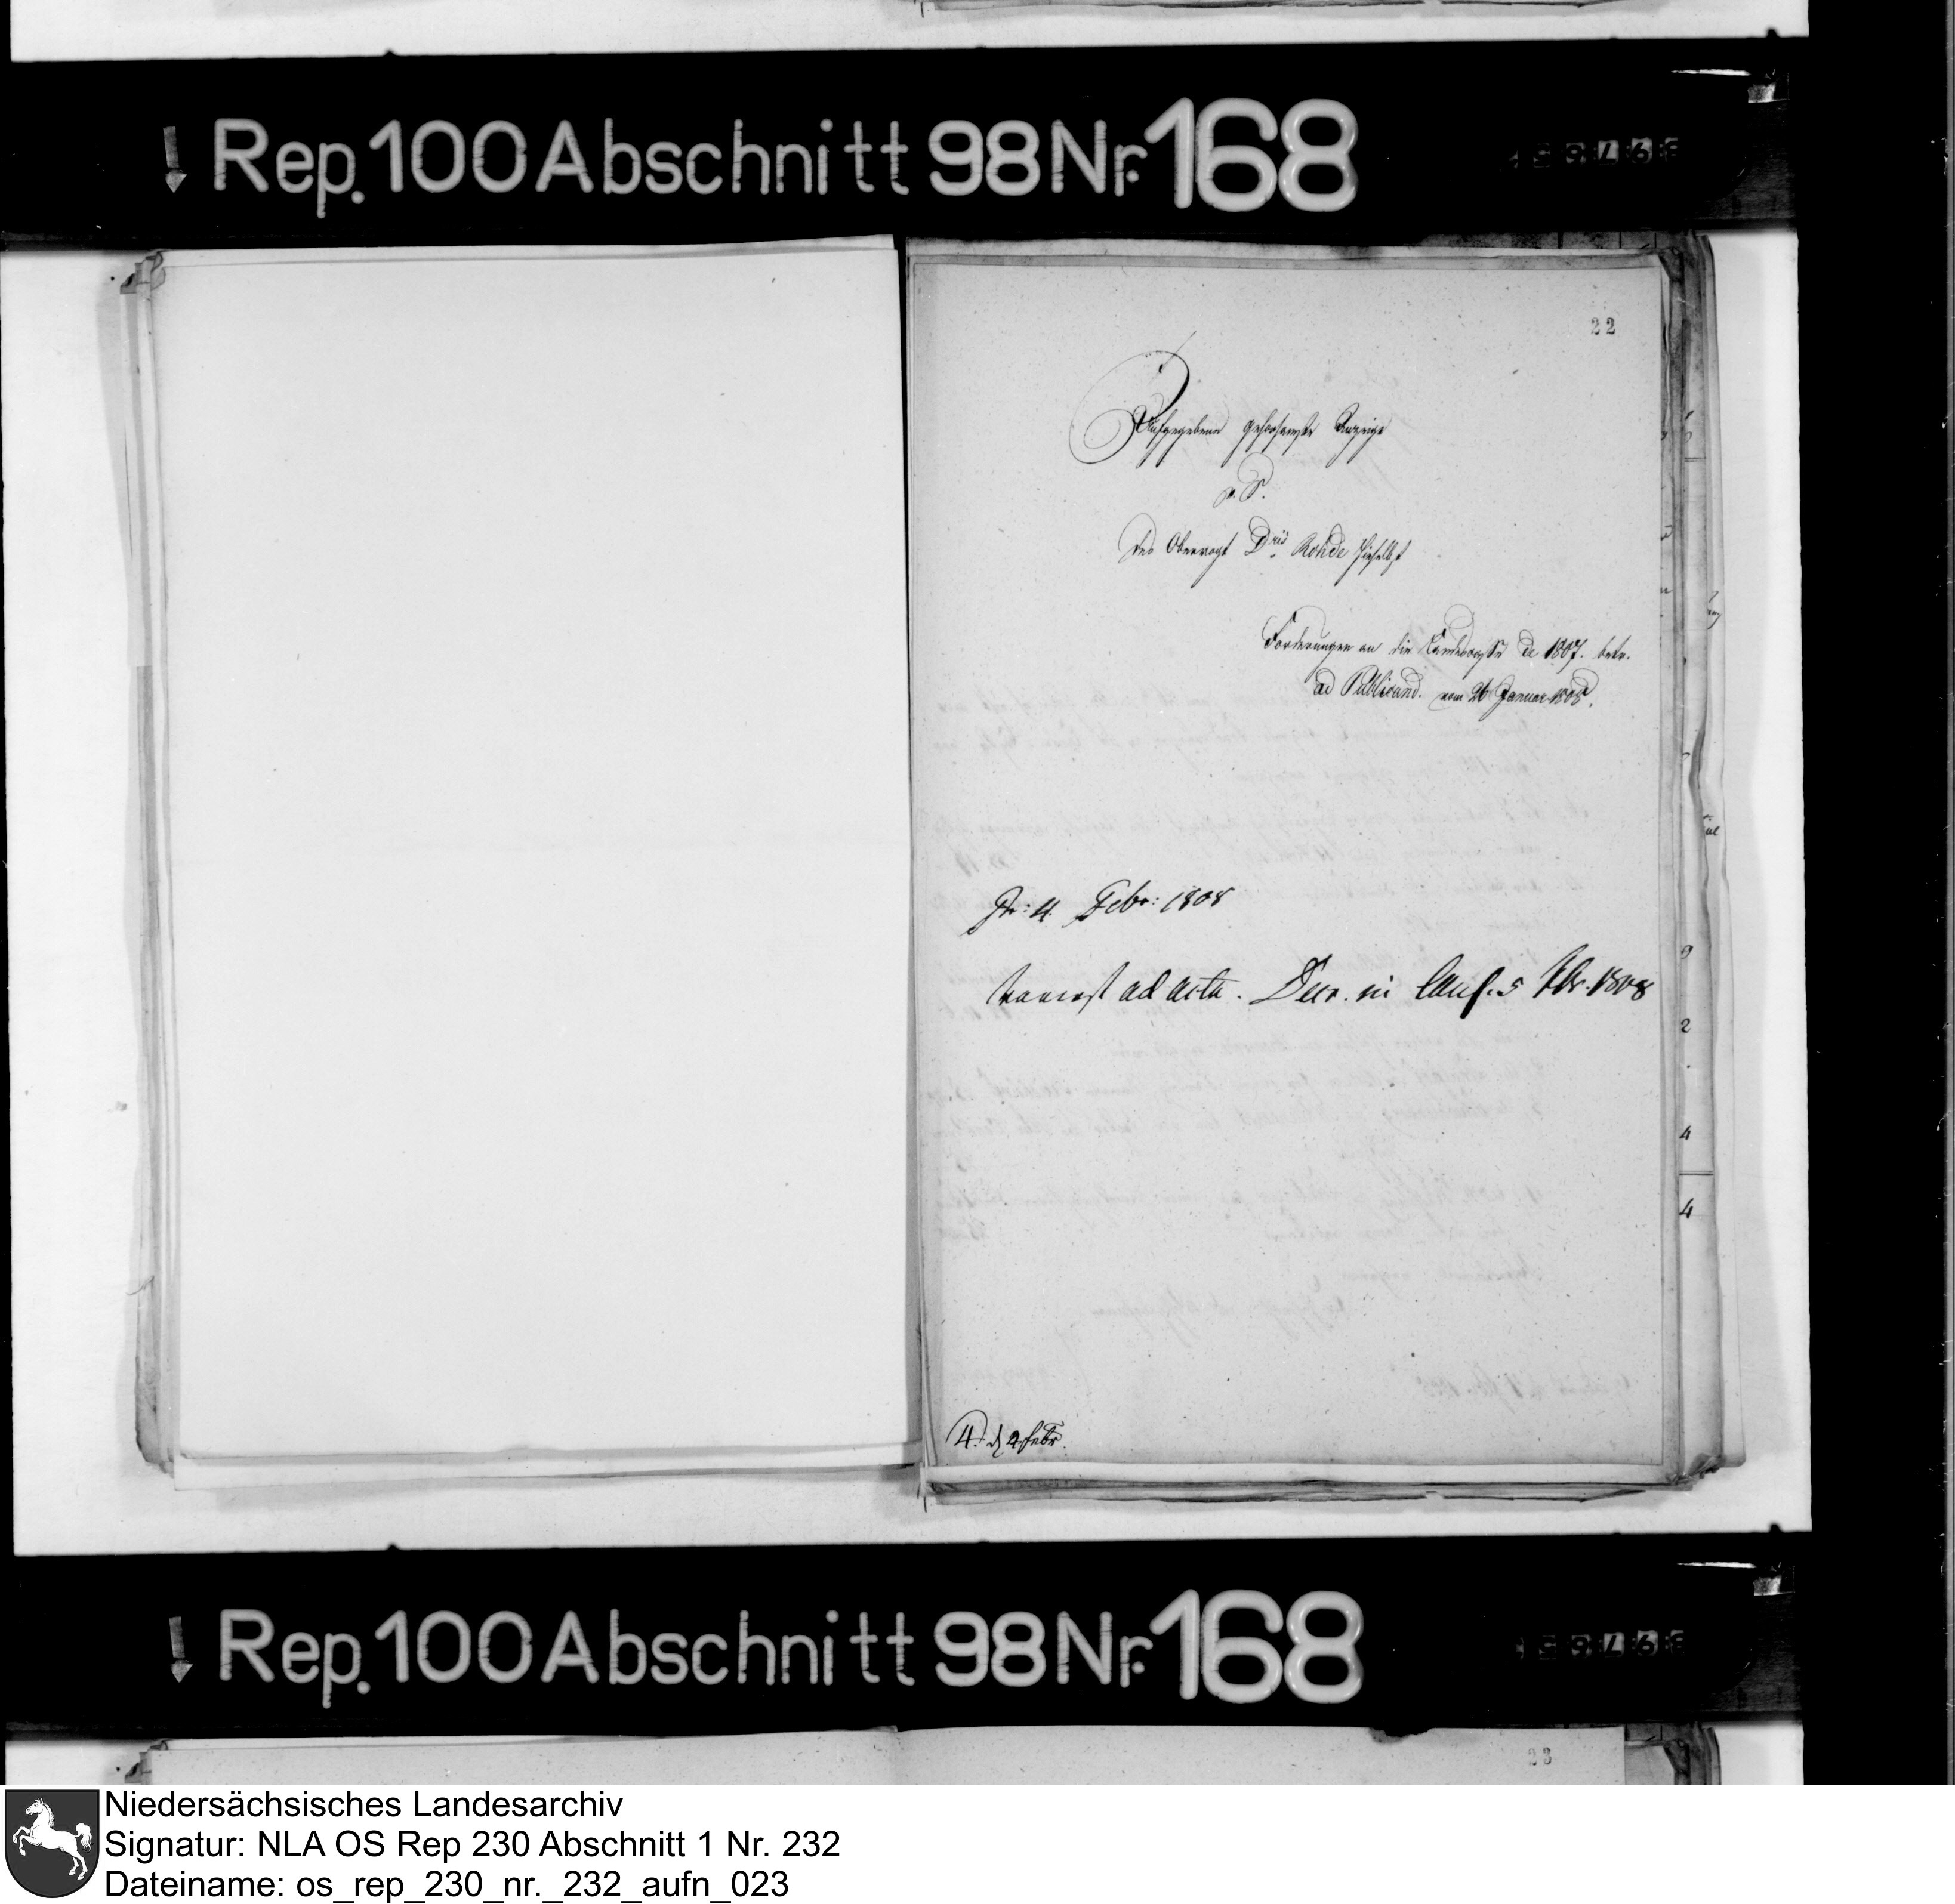 Rep. 100 Abschnitt 98 Nr. 168
22
Aufgegebene gehorsamste Anzeige
p. S.
des Obervogt Dris Rohde hieselbst
Forderungen an die Landescasse de 1807. betr.
ad Publicand. vom 26 Januar 1808.
Pr: 4. Febr: 1808
ad acta. Decr. in Cons. 5 Fbr. 1808
4. d 4 febr.
9
2
4
4
Rep. 100 Abschnitt 98 Nr. 168
23
Niedersächsisches Landesarchiv
Signatur: NLA OS Rep 230 Abschnitt 1 Nr. 232
Dateiname: os_rep_230_nr._232_aufn_023